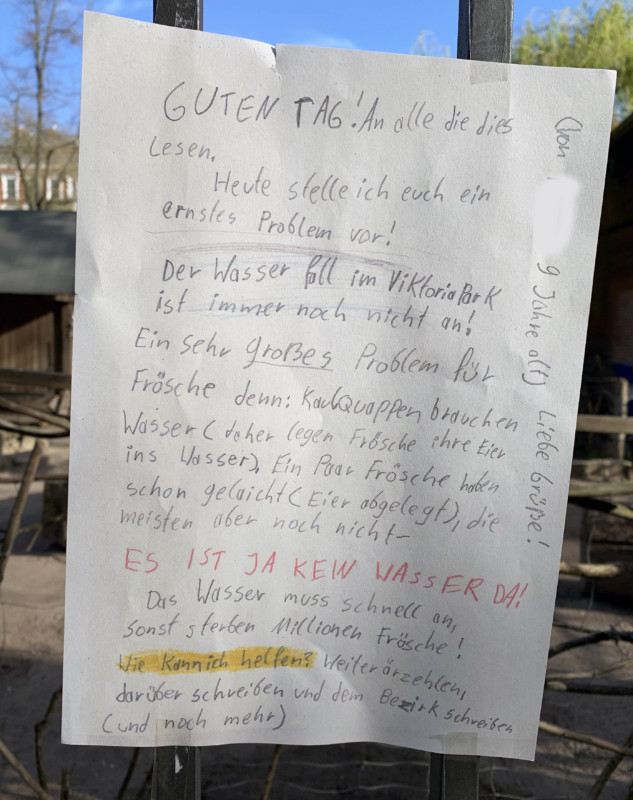 GUTEN TAG! An alle die dies
Lesen.
Heute stelle ich euch ein
ernstes Problem vor!
Der Wasser fall im Viktoria Park
ist immer noch nicht an!
Ein sehr großes Problem für
Frösche denn: KaulQuappen brauchen
Wasser (daher legen Frösche ihre Eier
ins Wasser). Ein Paar Frösche haben
schon gelaicht (Eier abgelegt), die
meisten aber noch nicht-
ES IST JA KEIN WASSER DA!
Das Wasser muss schnell an,
sonst sterben Millionen Frösche!
Wie kann ich helfen? Weiter ärzehlen,
darüber schreiben und dem Bezirk schreiben
(und noch mehr)
(von 9 Jahre alt) Liebe Grüße!